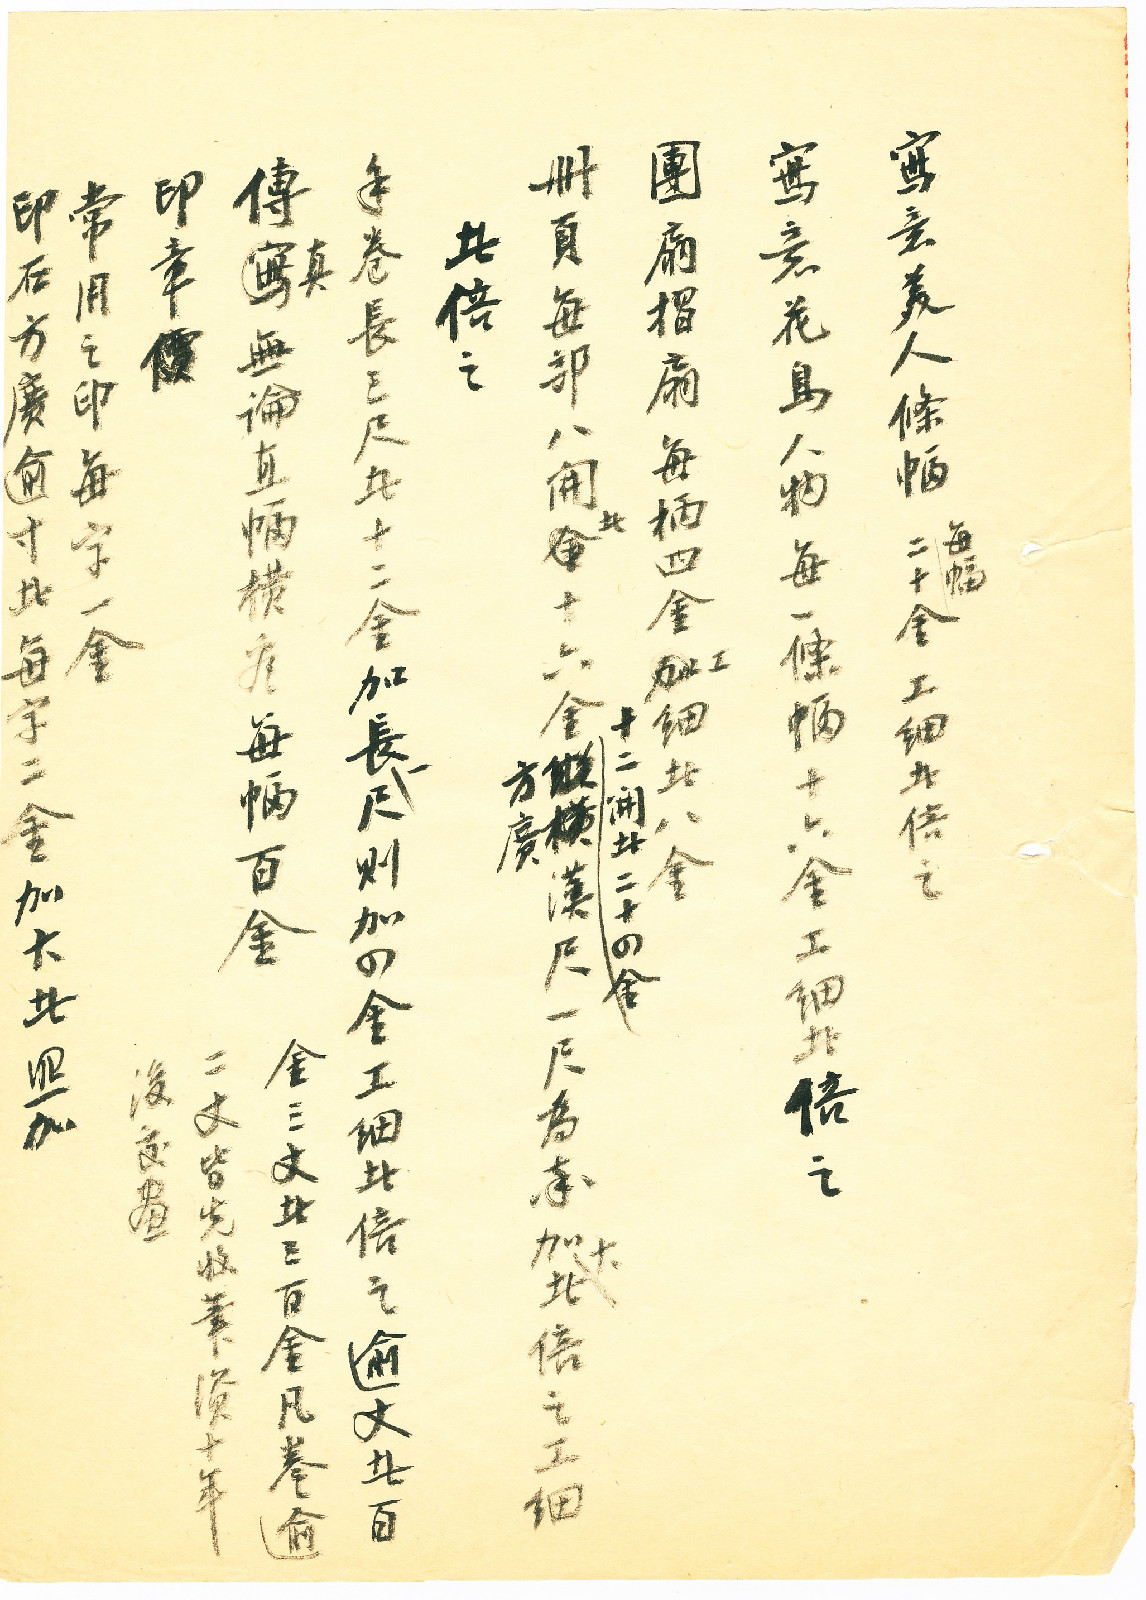 寫意美人條幅每幅二十金工細此倍之
寫意花鳥人物每一條幅十六金工細此倍之
團扇摺扇每柄四金工細此八金
十二開此二十四金
冊頁每部八開此十六金方廣漢尺一尺為率加大此倍之工細
此倍之
手卷長三尺此十二金加長一尺則加四金工細此倍之逾丈此百
金三丈此三百金凡卷逾
二丈皆先收筆潤十年
後交畫
傳真無論直幅橫卷每幅百金
印章價
常用之印每字一金
印石方廣逾寸此每字二金加大此照加